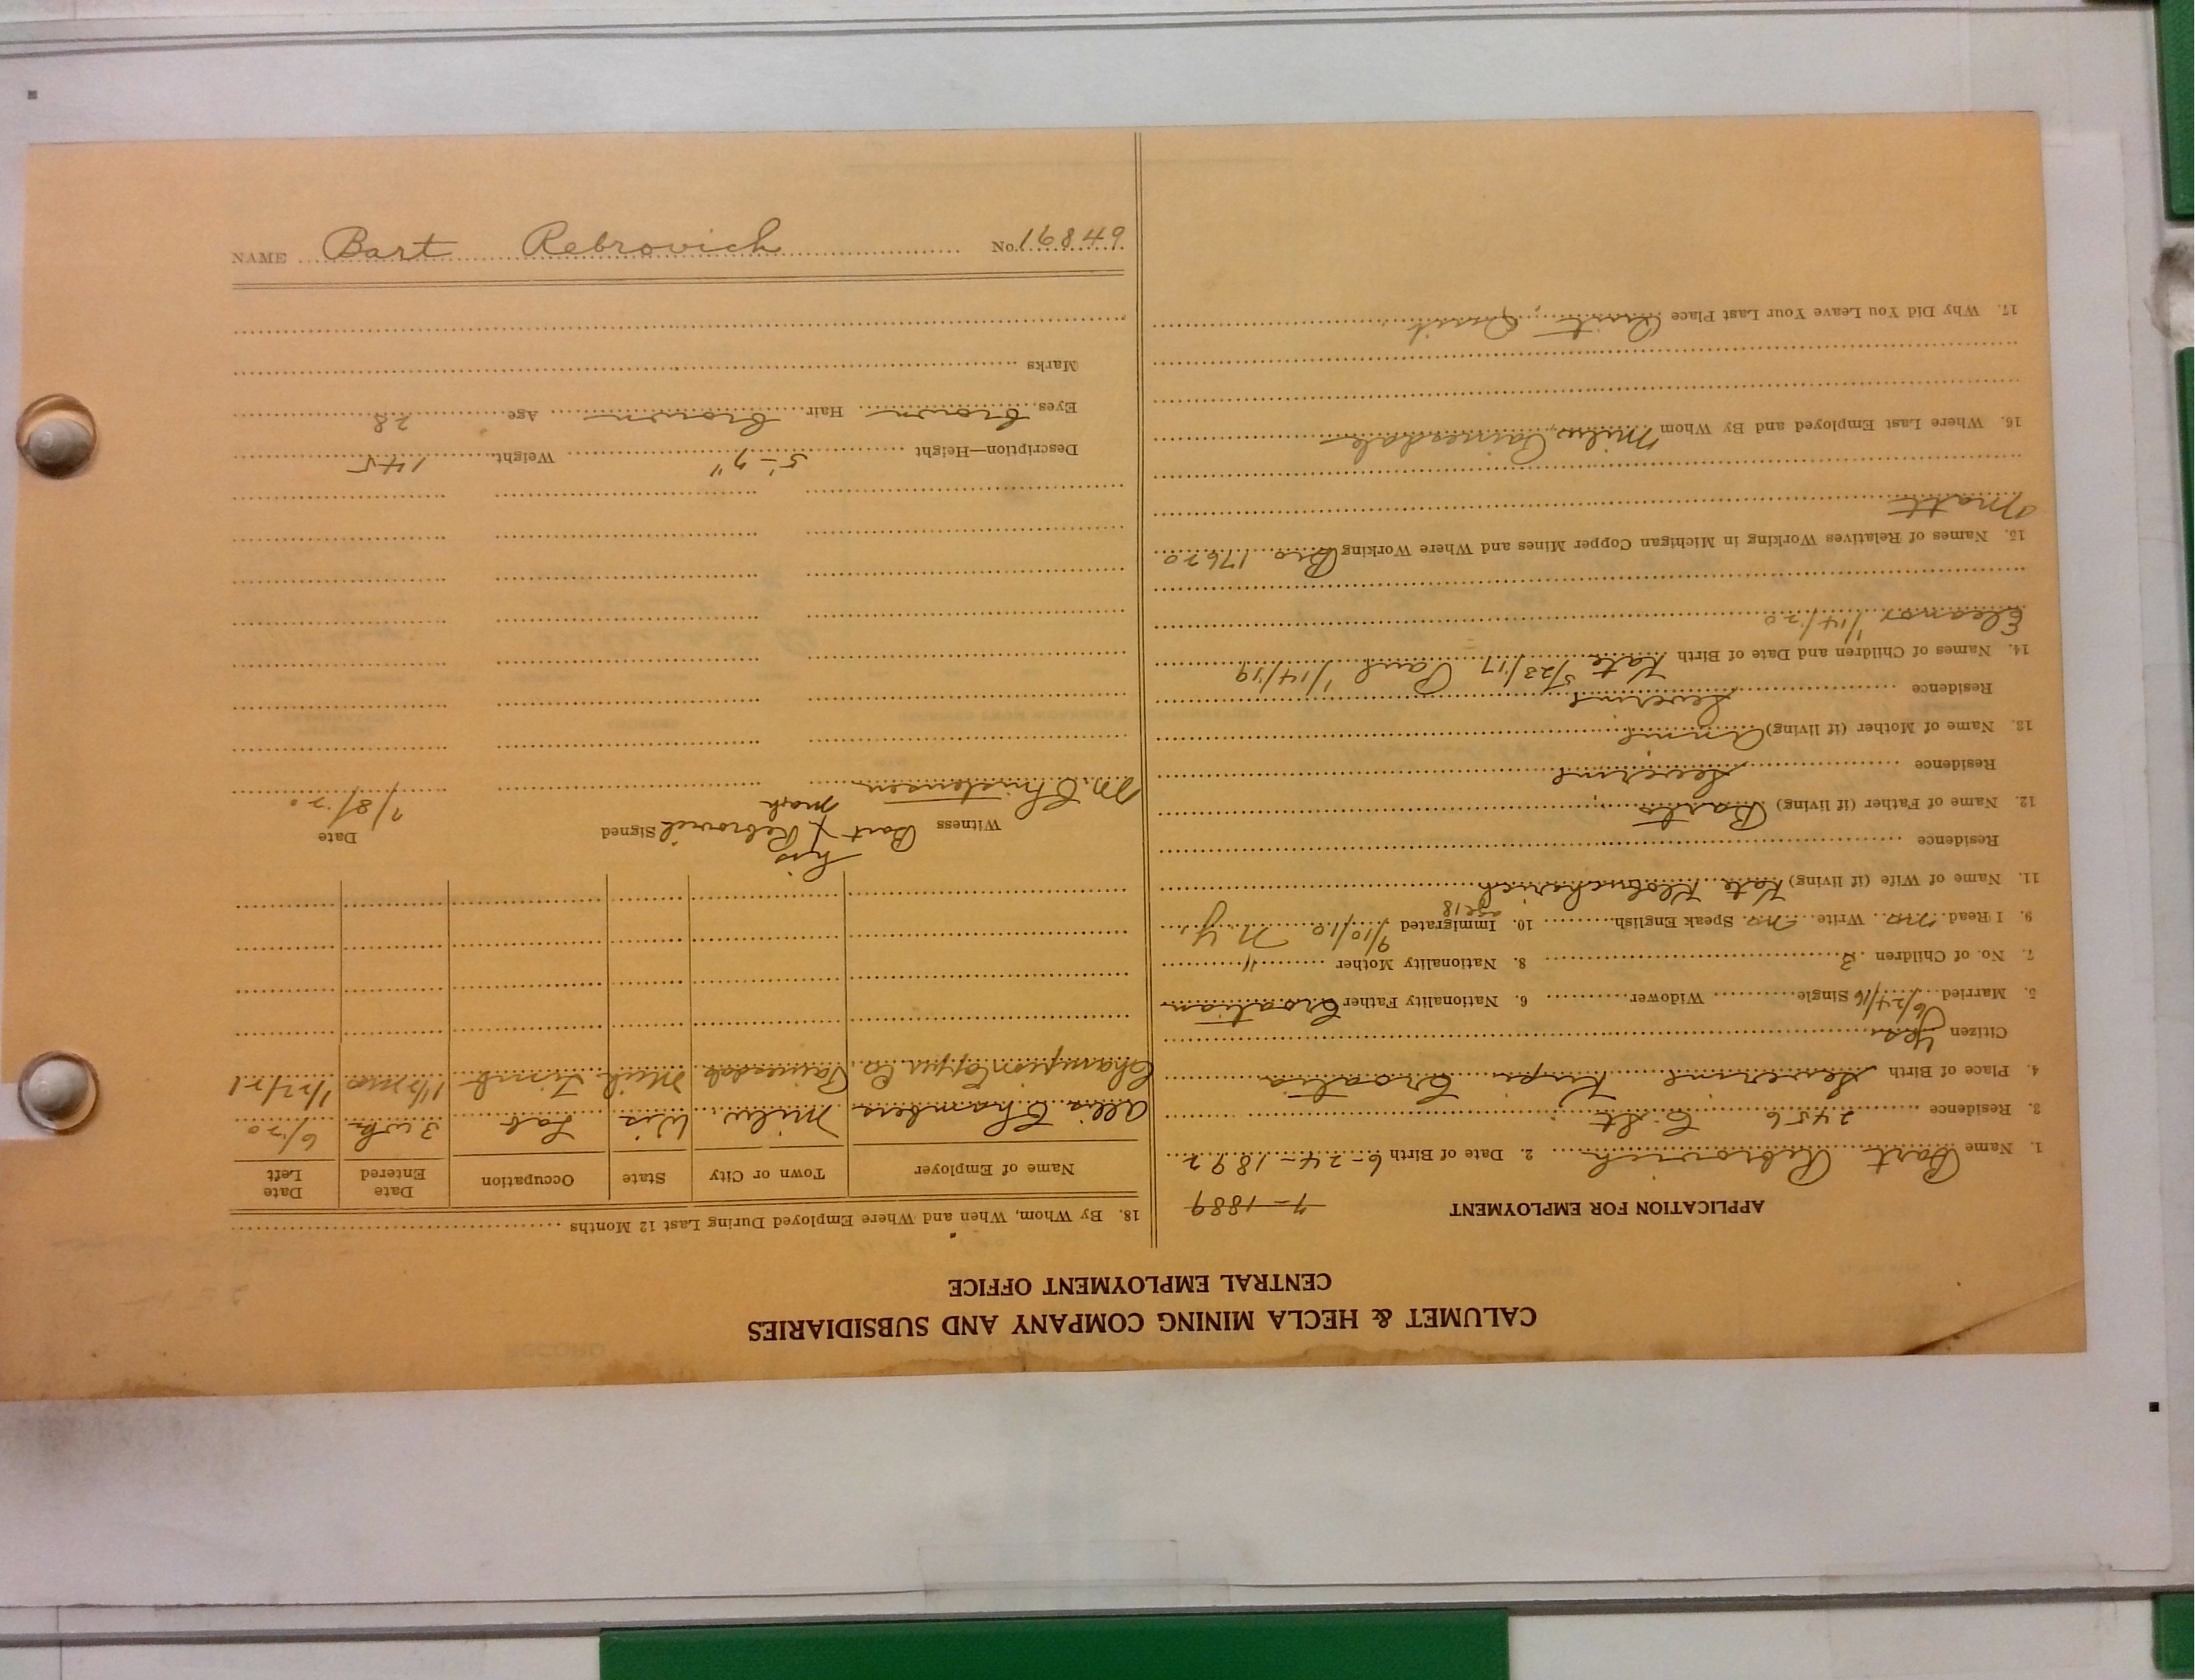 CALUMET & HECLA MINING COMPANY AND SUBSIDIARIES
CENTRAL EMPLOYMENT OFFICE
APPLICATION FOR EMPLOYMENT 7-1889
1. Name Bart Rebrovich 2. Date of Birth 6-24-1892
3. Residence 2456 C. St
4. Place of Birth Severine Croatia
Citizen Yes
5. Married 6/24/16 Single Widower 6. Nationality Father Croatian
7. No. of Children 3 8. Nationality Mother "
9. I Read no Write no Speak English 10. Immigrated 9/10/10 N.Y.
age 18
11. Name of Wife (if living) Kate Klobucharich
Residence
12. Name of Father (if living) Barto
Residence Severine
13. Name of Mother (if living) Annie
Residence Severine
14. Names of Children and Date of Birth Kate 5/23/17 Paul 1/14/19
Eleanor 1/14/20
15. Names of Relatives Working in Michigan Copper Mines and Where Working Bro 17620
Matt
16. Where Last Employed and By Whom Milw, Painesdale
17. Why Did You Leave Your Last Place Quit, Quit
18. By Whom, When and Where Employed During Last 12 Months
Name of Employer Town or City State Occupation Date Entered Date Left
Allis Chambers Milw. Wis Lab 3 wks 6/20
Champion Copper Co. Painesdale Mich Timb 1 1/2 mo 1/27/21
his
Witness Bart X Rebrovich Signed Date
mark
M. Christensen 7/8/20
Description—Height 5'-7" Weight 145
Eyes brown Hair brown Age 28
Marks
NAME Bart Rebrovich No. 16849